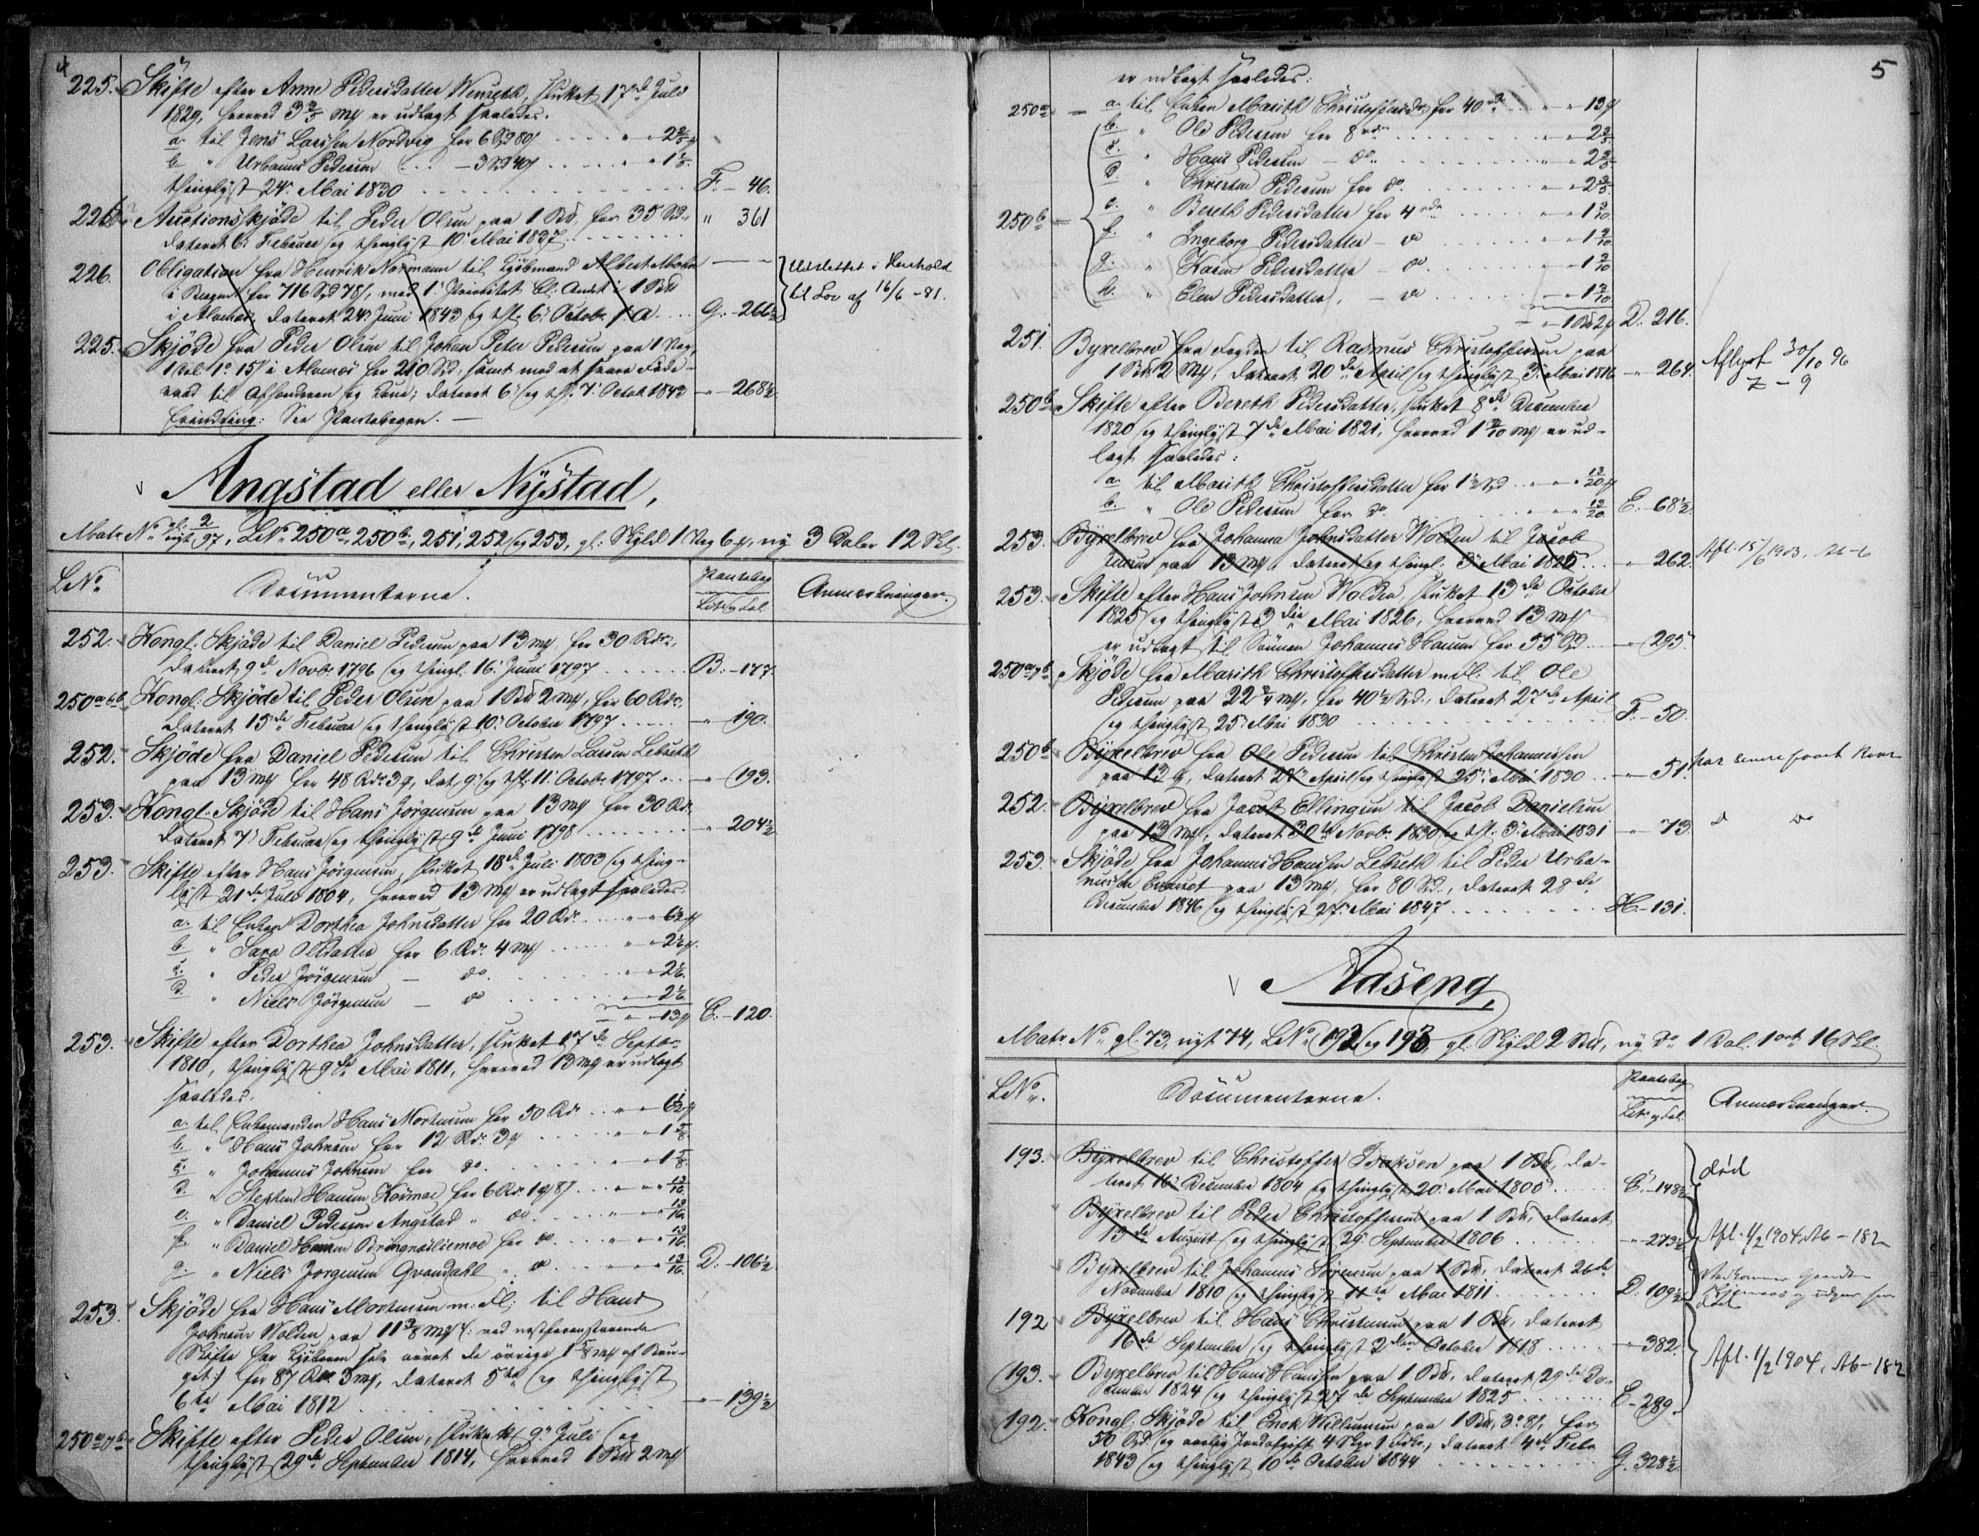 4
225. Skifte efter Anne Pedersdatter Nenseth, sluttet 17de Juli
1829, hvorved 3 3/5 mk er udlagt saaledes.
a. til Jens Larssen Nordvig for 6 Spd 80 s . . . . " " 2 2/5
b. " Urbanus Pedersen . . — 3 Spd 40 s . . . . " " 1 1/5
thinglyst 24. Mai 1830 . . . . F. - 46.
226 Auctionsskjøde til Peder Olsen paa 1 Bd. for 35 Spd.
dateret 6. Februar og thinglyst 10. Mai 1837 . . . . " 361
226. Obligation fra Henrik Normann til Kjøbmand Albert Mohn
i Bergen for 716 Spd 78 s, med 1. Prioritet bl. Andet i 1 Bd
i Alsmo, dateret 24. Juni 1843 og th. 6. Octob. s. A. . . G. - 266 1/2
Udslettet i Henhold
til Lov af 16/6 - 81.
225. Skjøde fra Peder Olsen til Johan Peter Pedersen paa 1 Vog,
for 210 Spd. samt mod at svare Føde-
raad til Afhænderen og Kone; dateret 6. og th. 7. Octob. 1843 — 268 1/2
Erindring: See Pantebogen. —
Angstad eller Nÿstad,
Matr. No. gl. 2 nyt 97, LNo 250a, 250b, 251, 252 og 253, gl. Skyld 1 Vog 6 s, ny 3 Daler 12 Skl.
LNo
Documenterne.
Pantebog
Litr. og fol.
Anmærkninger.
252. Kongl. Skjøde til Daniel Pedersen paa 13 mk for 30 Rdr.
dateret 9de Novbr. 1796 og thingl. 16. Juni 1797 . . . . B. - 177.
250a&b Kongl. Skjøde til Peder Olsen paa 1 Bd 2 mk, for 60 Rdr.
dateret 15de Februar og thinglyst 10. October 1797 . . . . — 190.
252. Skjøde fra Daniel Pedersen til Christen Larsen Lebseth
paa 13 mk for 48 Rdr. 3 s, dat. 9. og th. 11. Octob. 1797 . . — 193.
253. Kongl. Skjøde til Hans Jørgensen paa 13 mk for 30 Rdr.
dateret 7. Februar og thinglyst 9de Juni 1798 . . . . — 204 1/2
253. Skifte efter Hans Jørgensen, sluttet 18de Juli 1803 og thing-
lyst 21de Juli 1804, hvorved 13 mk er udlagt saaledes.
a. til Enken Dorthea Johnsdatter for 20 Rdr. . . " " 6 1/2
b. " Sara Olsdatter for 6 Rd. 4 mk . . . . " " 2 1/6
c. " Peder Jørgensen — do. . . . . " " 2 1/6
d. " Niels Jørgensen — do . . . . " " 2 1/6
" " 13 C. - 120.
253. Skifte efter Dorthea Johnsdatter, sluttet 17de Septbr.
1810, thinglyst 9de Mai 1811, hvorved 13 mk er udlagt
saaledes.
a. til Enkemanden Hans Mortensen for 50 Rdr. . . " " 6 1/2
b. " Hans Johnsen for 12 Rd. 3 . . . . " " 1 5/8
c. " Johannes Johnsen for do. . . . . " " 1 5/8
d. " Stephen Hansen for 6 Rd. 1 8 s . . " " 13/16
e. " Daniel Pedersen Angstad " do. . . . " " 13/16
f. " Daniel Hansen for do. . . . " " 13/16
g. " Niels Jørgensen Qvandahl " do . . " " 13/16 D. - 106 1/2
253. Skjøde fra Hans Mortensen m. fl. til Hans
Johnsen Volden paa 11 3/8 mk (: ved nestforanstaaende
Skifte har Kjøberen selv arvet de øvrige 1 5/8 mk af Brug-
get :) for 87 Rdr. 3 mk, dateret 5te og thinglyst
6te Mai 1812 . . . . — 139 1/2
250a&b Skifte efter Peder Olsen, sluttet 9. Juli og
thinglyst 29de September 1814, hvorved 1 Bd 2 mk
5
er udlagt saaledes:
250a — a. til Enken Marith Christophersd. for 40 rd. . . " " 13
b. " Ole Pedersen for 8 rdr. . . . . " " 2 3/5
c. " Hans Pedersen — do. . . . . " " 2 3/5
d. " Christen Pedersen for do. . . . . " " 2 3/5
250b — e. " Bereth Pedersdatter for 4 rdr . . . . " " 1 3/10
f. " Ingeborg Pedersdatter — do . . . . " " 1 3/10
g. " Karen Pedersdatter — do. . . . . " " 1 3/10
h. " Elen Pedersdatter, — do . . . . " " 1 3/10
" 1 Bd 2 D. 216.
251. Byxelbrev fra Fogden til Rasmus Christoffersen paa
1 Bd 2 mk, dateret 20de April og thinglyst 3. Mai 1816 — 264. Aflyst 30/10 96
Z - 9
250b Skifte efter Bereth Pedersdatter, sluttet 8de December
1820 og thinglyst 7de Mai 1821, hvorved 1 3/10 mk er ud-
lagt saaledes:
a. til Marith Christophersdatter for 1 1/2 Spd . . " " 13/20
b. " Ole Pedersen for do. . . . . " " 13/20 E. - 68 1/2.
253. Byxelbrev fra Johanna Johnsdatter Wolden til Jacob
Jensen paa 13 mk, dateret og thingl. 3. Mai 1825 . . . — 262. Afl. 15/6 1903. Ab-6
253. Skifte efter Hans Johnsen Wolden, sluttet 13de October
1825 og thinglyst 3die Mai 1826, hvorved 13 mk
er udlagt til Sønnen Johannes Hansen for 55 Spd. . . — 295.
250a&b Skjøde fra Marith Christophersdatter m. fl. til Ole
Pedersen paa 22 mk, for 40 1/2 Spd., dateret 27de April
og thinglyst 25. Mai 1830 . . . . F. - 50.
250b Byxelbrev fra Ole Pedersen til Christen Johannessen
paa 13 , dateret 27. April og thinglyst 25. Mai 1830 . . — 51. har senere faaet
252. Byxelbrev fra Jacob Ellingsen til Jacob Danielsen
paa 13 mk, dateret 30te Novbr. 1830 og th. 3. Mai 1831 — 73. do do
253. Skjøde fra Johannes Hanssen Lebseth til Peder Urba-
nussen paa 13 mk, for 80 Spd., dateret 28de
December 1846 og thinglyst 27. Mai 1847 . . . . H. - 131.
Aaseng,
Matr. No. gl. 73, nyt 74, LNo. 192 og 193, gl. Skyld 2 Bd, ny do 1 Dal. 1 ort 16 Skl.
LNo.
Documenterne.
Pantebog
Litr. og fol.
Anmærkninger.
193. Byxelbrev til Christoffer Isaksen paa 1 Bd, da-
teret 16. December 1804 og thinglyst 20. Mai 1805 . . . . C. - 148 1/2 død
Byxelbrev til Peder Christoffersen paa 1 Bd, dateret
13de August og thinglyst 29. September 1806 . . . . — 273 1/2 Afl. 1/2 1904. Ab - 182
Byxelbrev til Johannes Sørensen paa 1 Bd, dateret 26de
November 1810 og thinglyst 11te Mai 1811 . . . . D. 109 1/2
død
192 Byxelbrev til Hans Christensen paa 1 Bd, dateret
16de September og thinglyst 2den October 1818 . . . . — 382. Afl. 1/2 1904, Ab - 182
193. Byxelbrev til Hans Hanssen paa 1 Bd. dateret 29de De-
cember 1824 og thinglyst 27de September 1825 . . . . E - 289
192. Kongl. Skjøde til Enok Willumsen paa 1 Bd, 3. 8 s, for
50 Spd. og aarlig Jordafgift , dateret 4de Febr.
1843 og thinglyst 10de October 1844 . . . . G. 328 1/2